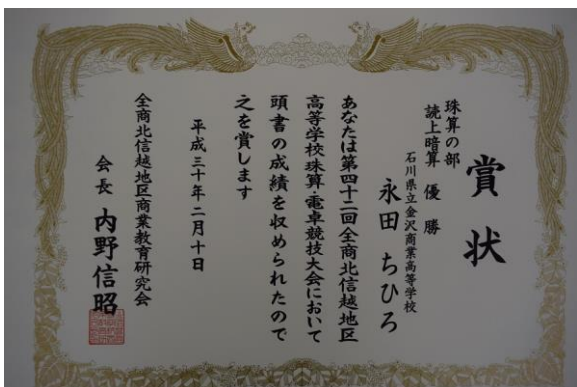 賞状
珠算の部
読上暗算 優勝
石川県立金沢商業高等学校
永田 ちひろ
あなたは第四十二回全商北信越地区
高等学校珠算・電卓競技大会において
頭書の成績を収められたので
之を賞します
平成三十年二月十日
全商北信越地区商業教育研究会
会長 内野信昭